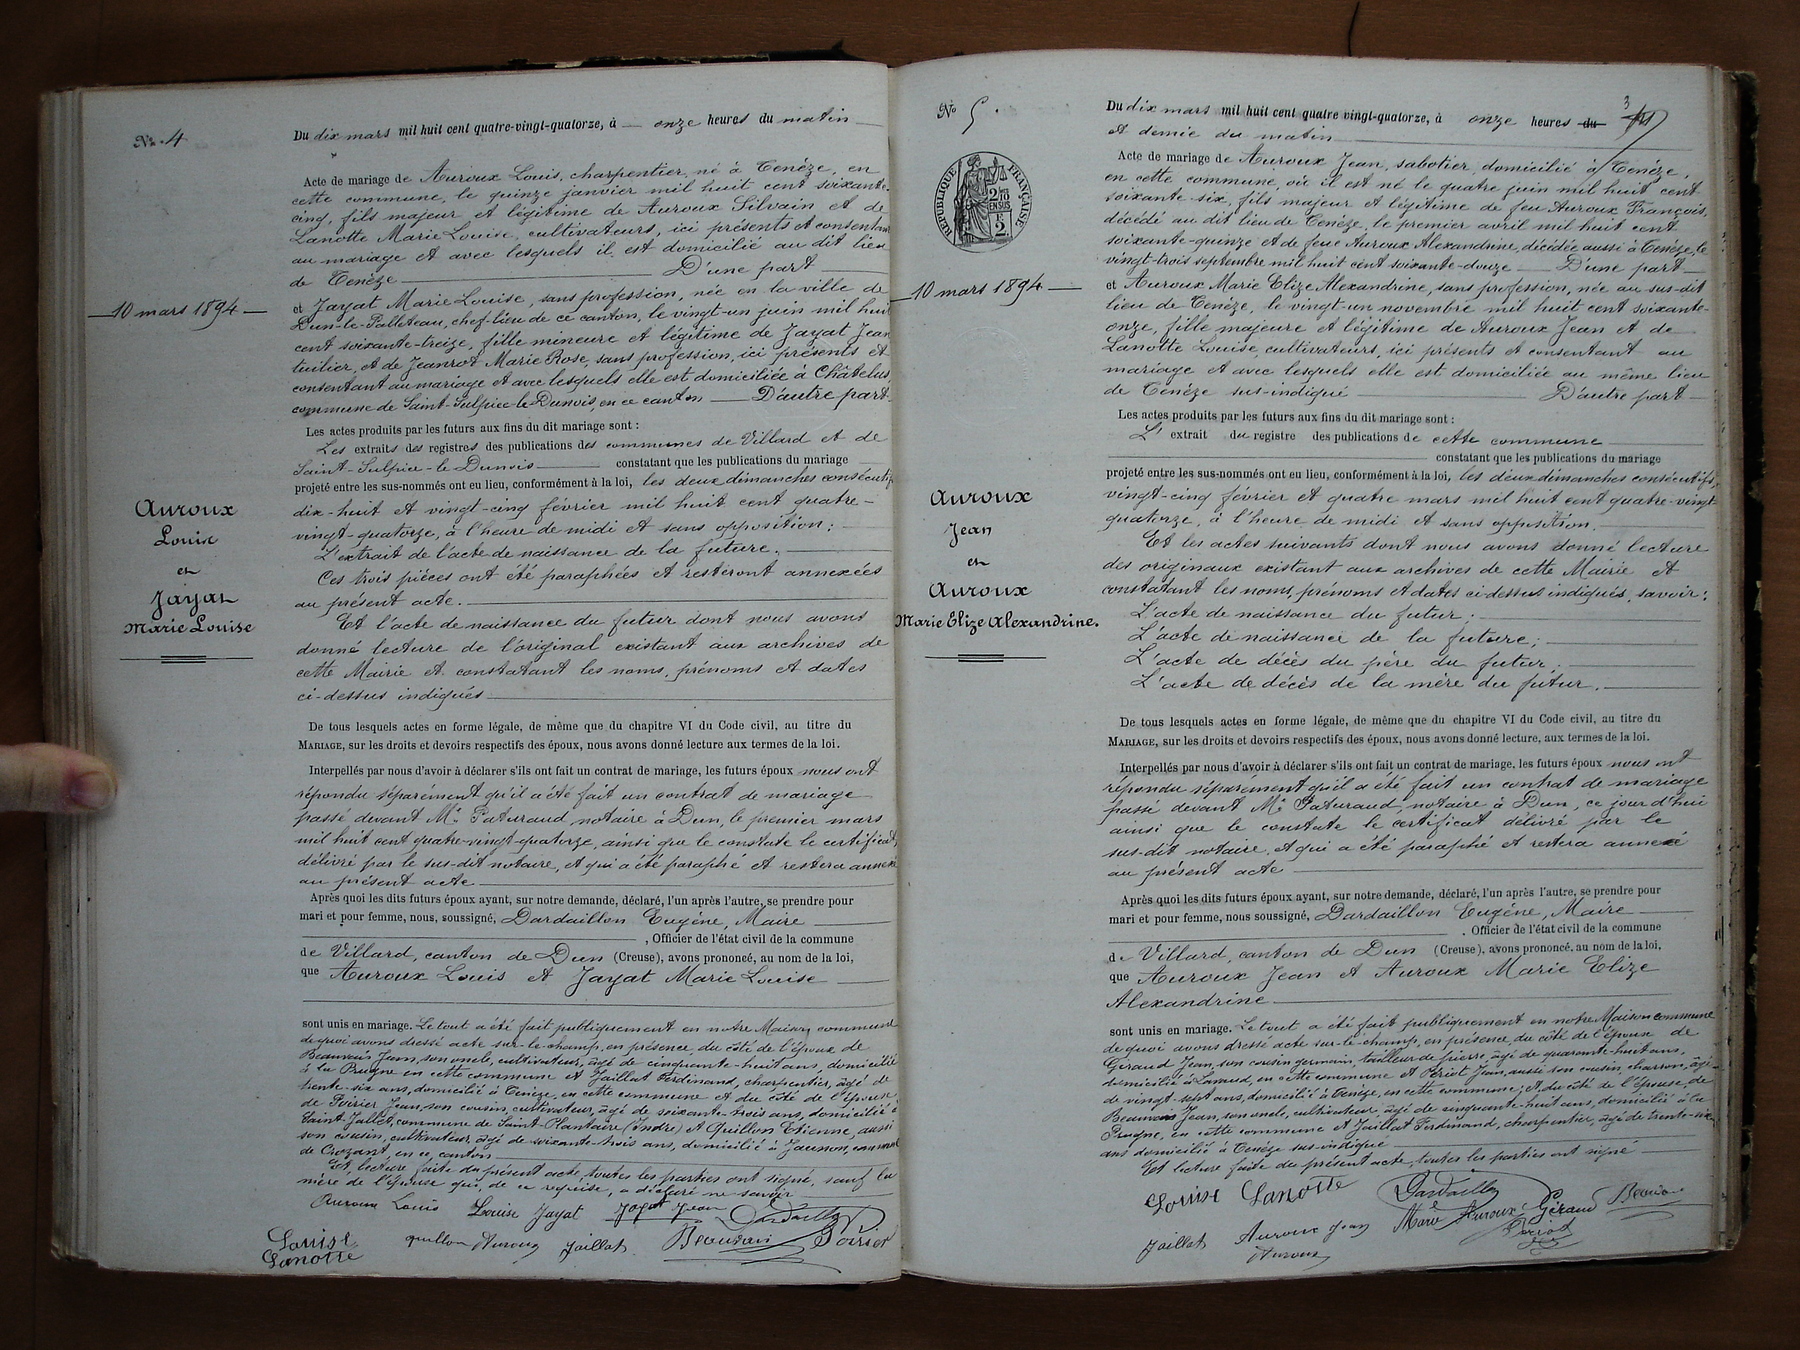 No. 4
10 mars 1894
Auroux
Louis
et
Jayat
Marie Louise
Du dix mars mil huit cent quatre-vingt-quatorze, à onze heures du matin
Acte de mariage de Auroux Louis, charpentier, né à Cenèze, en
cette commune, le quinze janvier mil huit cent soixante-
cinq, fils majeur et légitime de Auroux Silvain et de
Lanotte Marie Louise, cultivateurs, ici présents et consentant
au mariage et avec lesquels il est domicilié au dit lieu
de Cenèze D'une part
et Jayat Marie Louise, sans profession, née en la ville de
Dun-le-Palleteau, chef-lieu de ce canton, le vingt-un juin mil huit
cent soixante-treize, fille mineure et légitime de Jayat Jean
tuilier, et de Jeanrot Marie Rose, sans profession, ici présents et
consentant au mariage et avec lesquels elle est domiciliée à Châtelus
commune de Saint-Sulpice-le-Dunois, en ce canton D'autre part
Les actes produits par les futurs aux fins du dit mariage sont :
Les extraits des registres des publications des communes de Villard et de
Saint-Sulpice-le-Dunois constatant que les publications du mariage
projeté entre les sus-nommés ont eu lieu, conformément à la loi, les deux dimanches consécutifs
dix-huit et vingt-cinq février mil huit cent quatre-
vingt-quatorze, à l'heure de midi et sans opposition ;
L'extrait de l'acte de naissance de la future.
Ces trois pièces ont été paraphées et resteront annexées
au présent acte.
Et l'acte de naissance du futur dont nous avons
donné lecture de l'original existant aux archives de
cette Mairie et constatant les noms, prénoms et dates
ci-dessus indiqués
De tous lesquels actes en forme légale, de même que du chapitre VI du Code civil, au titre du
MARIAGE, sur les droits et devoirs respectifs des époux, nous avons donné lecture aux termes de la loi.
Interpellés par nous d'avoir à déclarer s'ils ont fait un contrat de mariage, les futurs époux nous ont
répondu séparément qu'il a été fait un contrat de mariage
passé devant Me Paturaud notaire à Dun, le premier mars
mil huit cent quatre-vingt-quatorze, ainsi que le constate le certificat
délivré par le sus-dit notaire, et qui a été paraphé et restera annexé
au présent acte
Après quoi les dits futurs époux ayant, sur notre demande, déclaré, l'un après l'autre, se prendre pour
mari et pour femme, nous, soussigné, Dardaillon Eugène, Maire
, Officier de l'état civil de la commune
de Villard, canton de Dun (Creuse), avons prononcé, au nom de la loi,
que Auroux Louis et Jayat Marie Louise
sont unis en mariage. Le tout a été fait publiquement en notre Maison commune
de quoi avons dressé acte sur-le-champ, en présence, du côté de l'époux de
Beauvais Jean, son oncle, cultivateur, âgé de cinquante-huit ans, domicilié
à la Prugne en cette commune et Jaillat Ferdinand, charpentier, âgé de
trente-six ans, domicilié à Cenèze, en cette commune et du côté de l'épouse
de Poirier Jean, son cousin, cultivateur, âgé de soixante-trois ans, domicilié à
Saint-Jallet, commune de Saint-Plantaire (Indre) et Guillon Etienne, aussi
son cousin, cultivateur, âgé de soixante-trois ans, domicilié à Josnon, commune
de Crozant, en ce canton
Et, lecture faite du présent acte, toutes les parties ont signé, sauf la
mère de l'épouse qui, de ce requise, a déclaré ne savoir
Auroux Louis Louise Jayat Jayat Jean Dardaillon
Louise
Lanotte
Guillon Auroux Jaillat Beauvais Poirier
No 5.
RÉPUBLIQUE FRANÇAISE
10 mars 1894
Auroux
Jean
et
Auroux
Marie Elize Alexandrine.
3
Du dix mars mil huit cent quatre vingt-quatorze, à onze heures du
et demie du matin
Acte de mariage de Auroux Jean, sabotier, domicilié à Cenèze,
en cette commune, où il est né le quatre juin mil huit cent
soixante-six, fils majeur et légitime de feu Auroux François,
décédé au dit lieu de Cenèze, le premier avril mil huit cent
soixante-quinze et de feue Auroux Alexandrine, décédée aussi à Cenèze, le
vingt-trois septembre mil huit cent soixante-douze D'une part
et Auroux Marie Elize Alexandrine, sans profession, née au sus-dit
lieu de Cenèze, le vingt-un novembre mil huit cent soixante-
onze, fille majeure et légitime de Auroux Jean et de
Lanotte Louise, cultivateurs, ici présents et consentant au
mariage et avec lesquels elle est domiciliée au même lieu
de Cenèze sus-indiqué D'autre part
Les actes produits par les futurs aux fins du dit mariage sont :
L' extrait du registre des publications de cette commune
constatant que les publications du mariage
projeté entre les sus-nommés ont eu lieu, conformément à la loi, les deux dimanches consécutifs,
vingt-cinq février et quatre mars mil huit cent quatre-vingt-
quatorze, à l'heure de midi et sans opposition.
Et les actes suivants dont nous avons donné lecture
des originaux existant aux archives de cette Mairie et
constatant les noms, prénoms et dates ci-dessus indiqués, savoir :
L'acte de naissance du futur ;
L'acte de naissance de la future ;
L'acte de décès du père du futur ;
L'acte de décès de la mère du futur.
De tous lesquels actes en forme légale, de même que du chapitre VI du Code civil, au titre du
MARIAGE, sur les droits et devoirs respectifs des époux, nous avons donné lecture, aux termes de la loi.
Interpellés par nous d'avoir à déclarer s'ils ont fait un contrat de mariage, les futurs époux nous ont
répondu séparément qu'il a été fait un contrat de mariage
passé devant Me Paturaud, notaire à Dun, ce jour d'hui
ainsi que le constate le certificat délivré par le
sus-dit notaire, et qui a été paraphé et restera annexé
au présent acte
Après quoi les dits futurs époux ayant, sur notre demande, déclaré, l'un après l'autre, se prendre pour
mari et pour femme, nous, soussigné, Dardaillon Eugène, Maire
, Officier de l'état civil de la commune
de Villard, canton de Dun (Creuse), avons prononcé, au nom de la loi,
que Auroux Jean et Auroux Marie Elize
Alexandrine
sont unis en mariage. Le tout a été fait publiquement en notre Maison commune
de quoi avons dressé acte sur-le-champ, en présence, du côté de l'époux de
Giraud Jean, son cousin germain, tailleur de pierre, âgé de quarante-huit ans,
domicilié à Lavaud, en cette commune et Périot Jean, aussi son cousin, charron, âgé
de vingt-sept ans, domicilié à Cenèze, en cette commune ; et du côté de l'épouse, de
Beauvais Jean, son oncle, cultivateur, âgé de cinquante-huit ans, domicilié à la
Prugne, en cette commune et Jaillat Ferdinand, charpentier, âgé de trente-six
ans domicilié à Cenèze sus-indiqué
Et lecture faite du présent acte, toutes les parties ont signé
Louise Lanotte Dardaillon
Marie Auroux Giraud Beauvais
Jaillat Auroux Jean Périot
Auroux